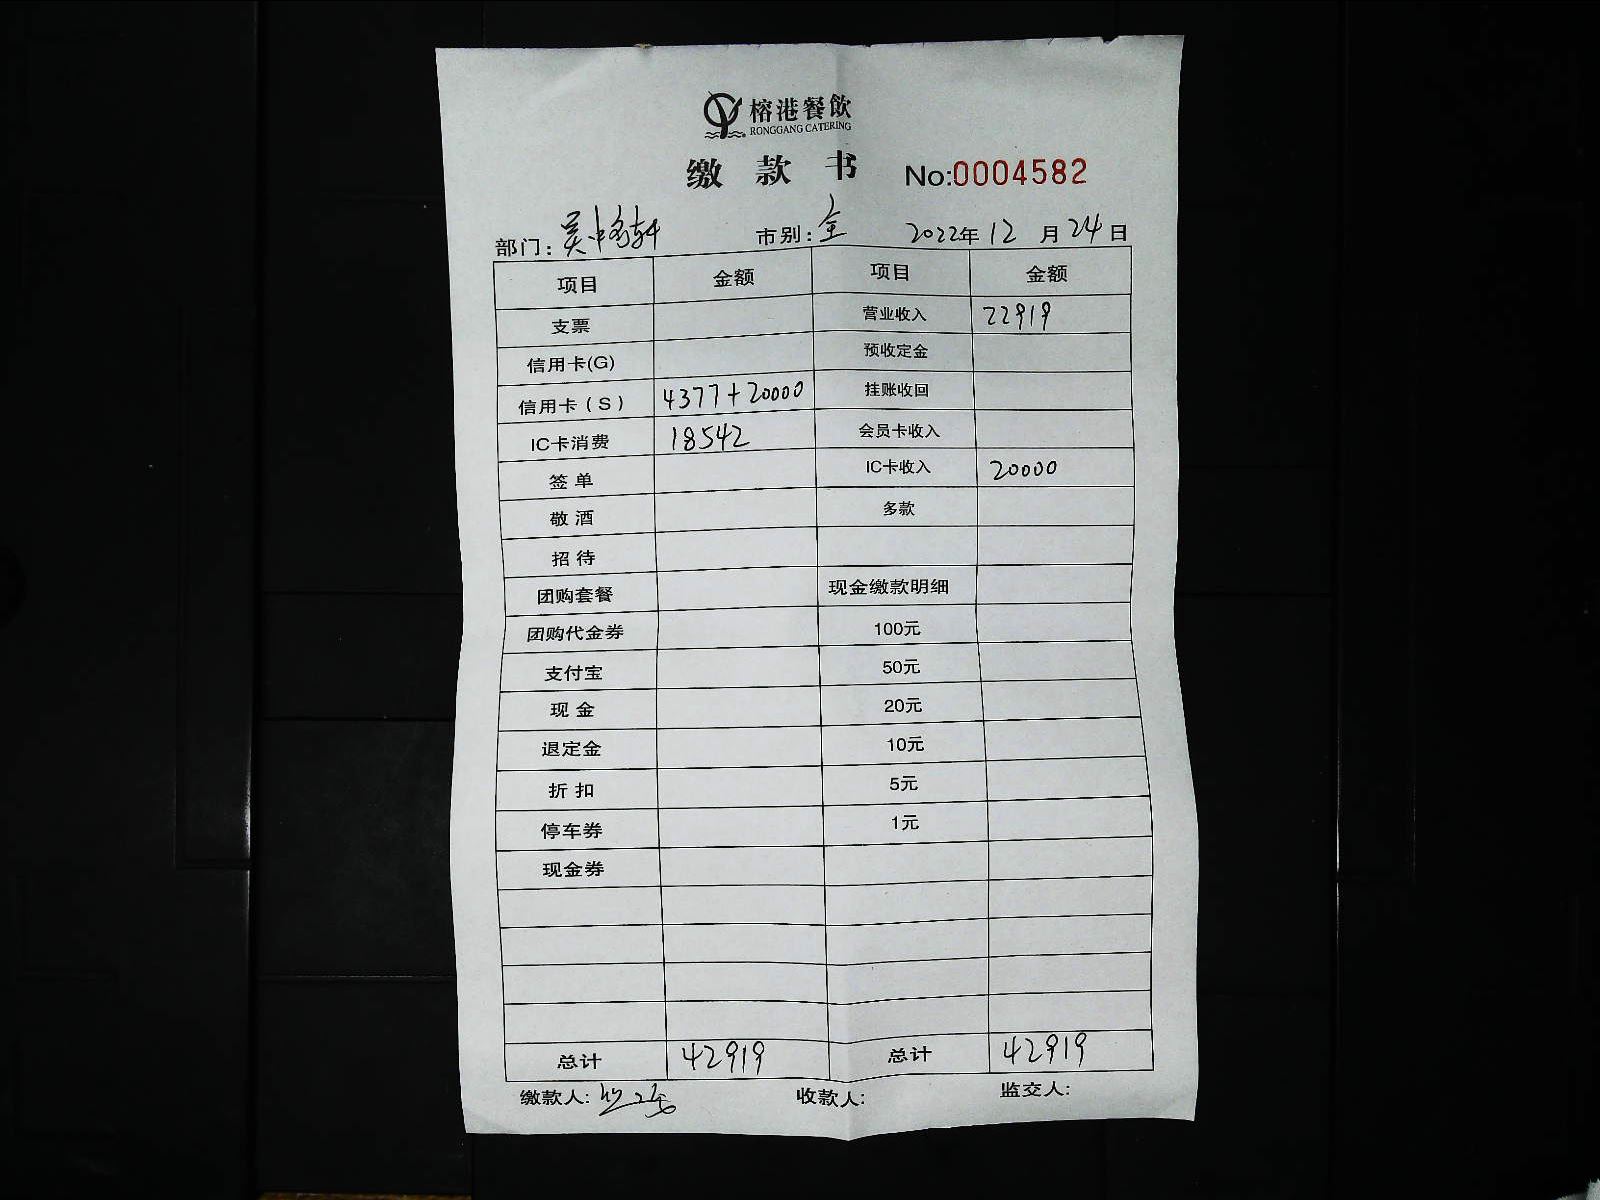 榕港餐飲
RONGGANG CATERING
缴款书 No:0004582
部门: 市别:全 2022年12月24日
项目 金额 项目 金额
支票 营业收入 22919
信用卡(G) 预收定金
信用卡(S) 4377+20000 挂账收回
IC卡消费 18542 会员卡收入
签单 IC卡收入 20000
敬酒 多款
招待
团购套餐 现金缴款明细
团购代金券 100元
支付宝 50元
现金 20元
退定金 10元
折扣 5元
停车券 1元
现金券
总计 42919 总计 42919
缴款人: 收款人: 监交人: